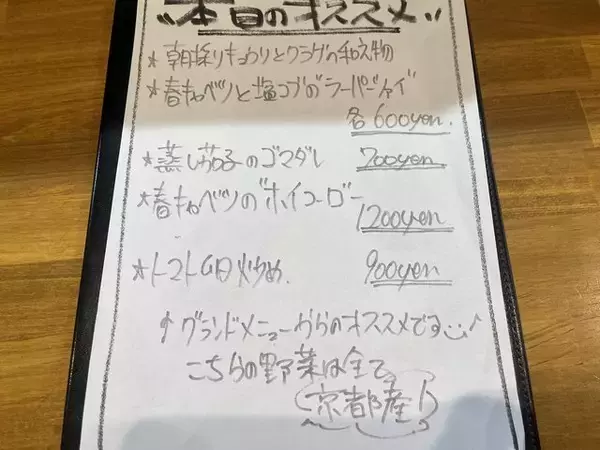 本日のオススメ
★朝採りキュウリとクラゲの和え物
★春キャベツと塩コブのラーパーツァイ
各600yen.
★蒸し茄子のゴマダレ 700yen
★春キャベツのホイコーロー
1200yen
★トマト 炒め. 900yen
↑グランドメニューからのオススメです♪
こちらの野菜は全て
京都産!